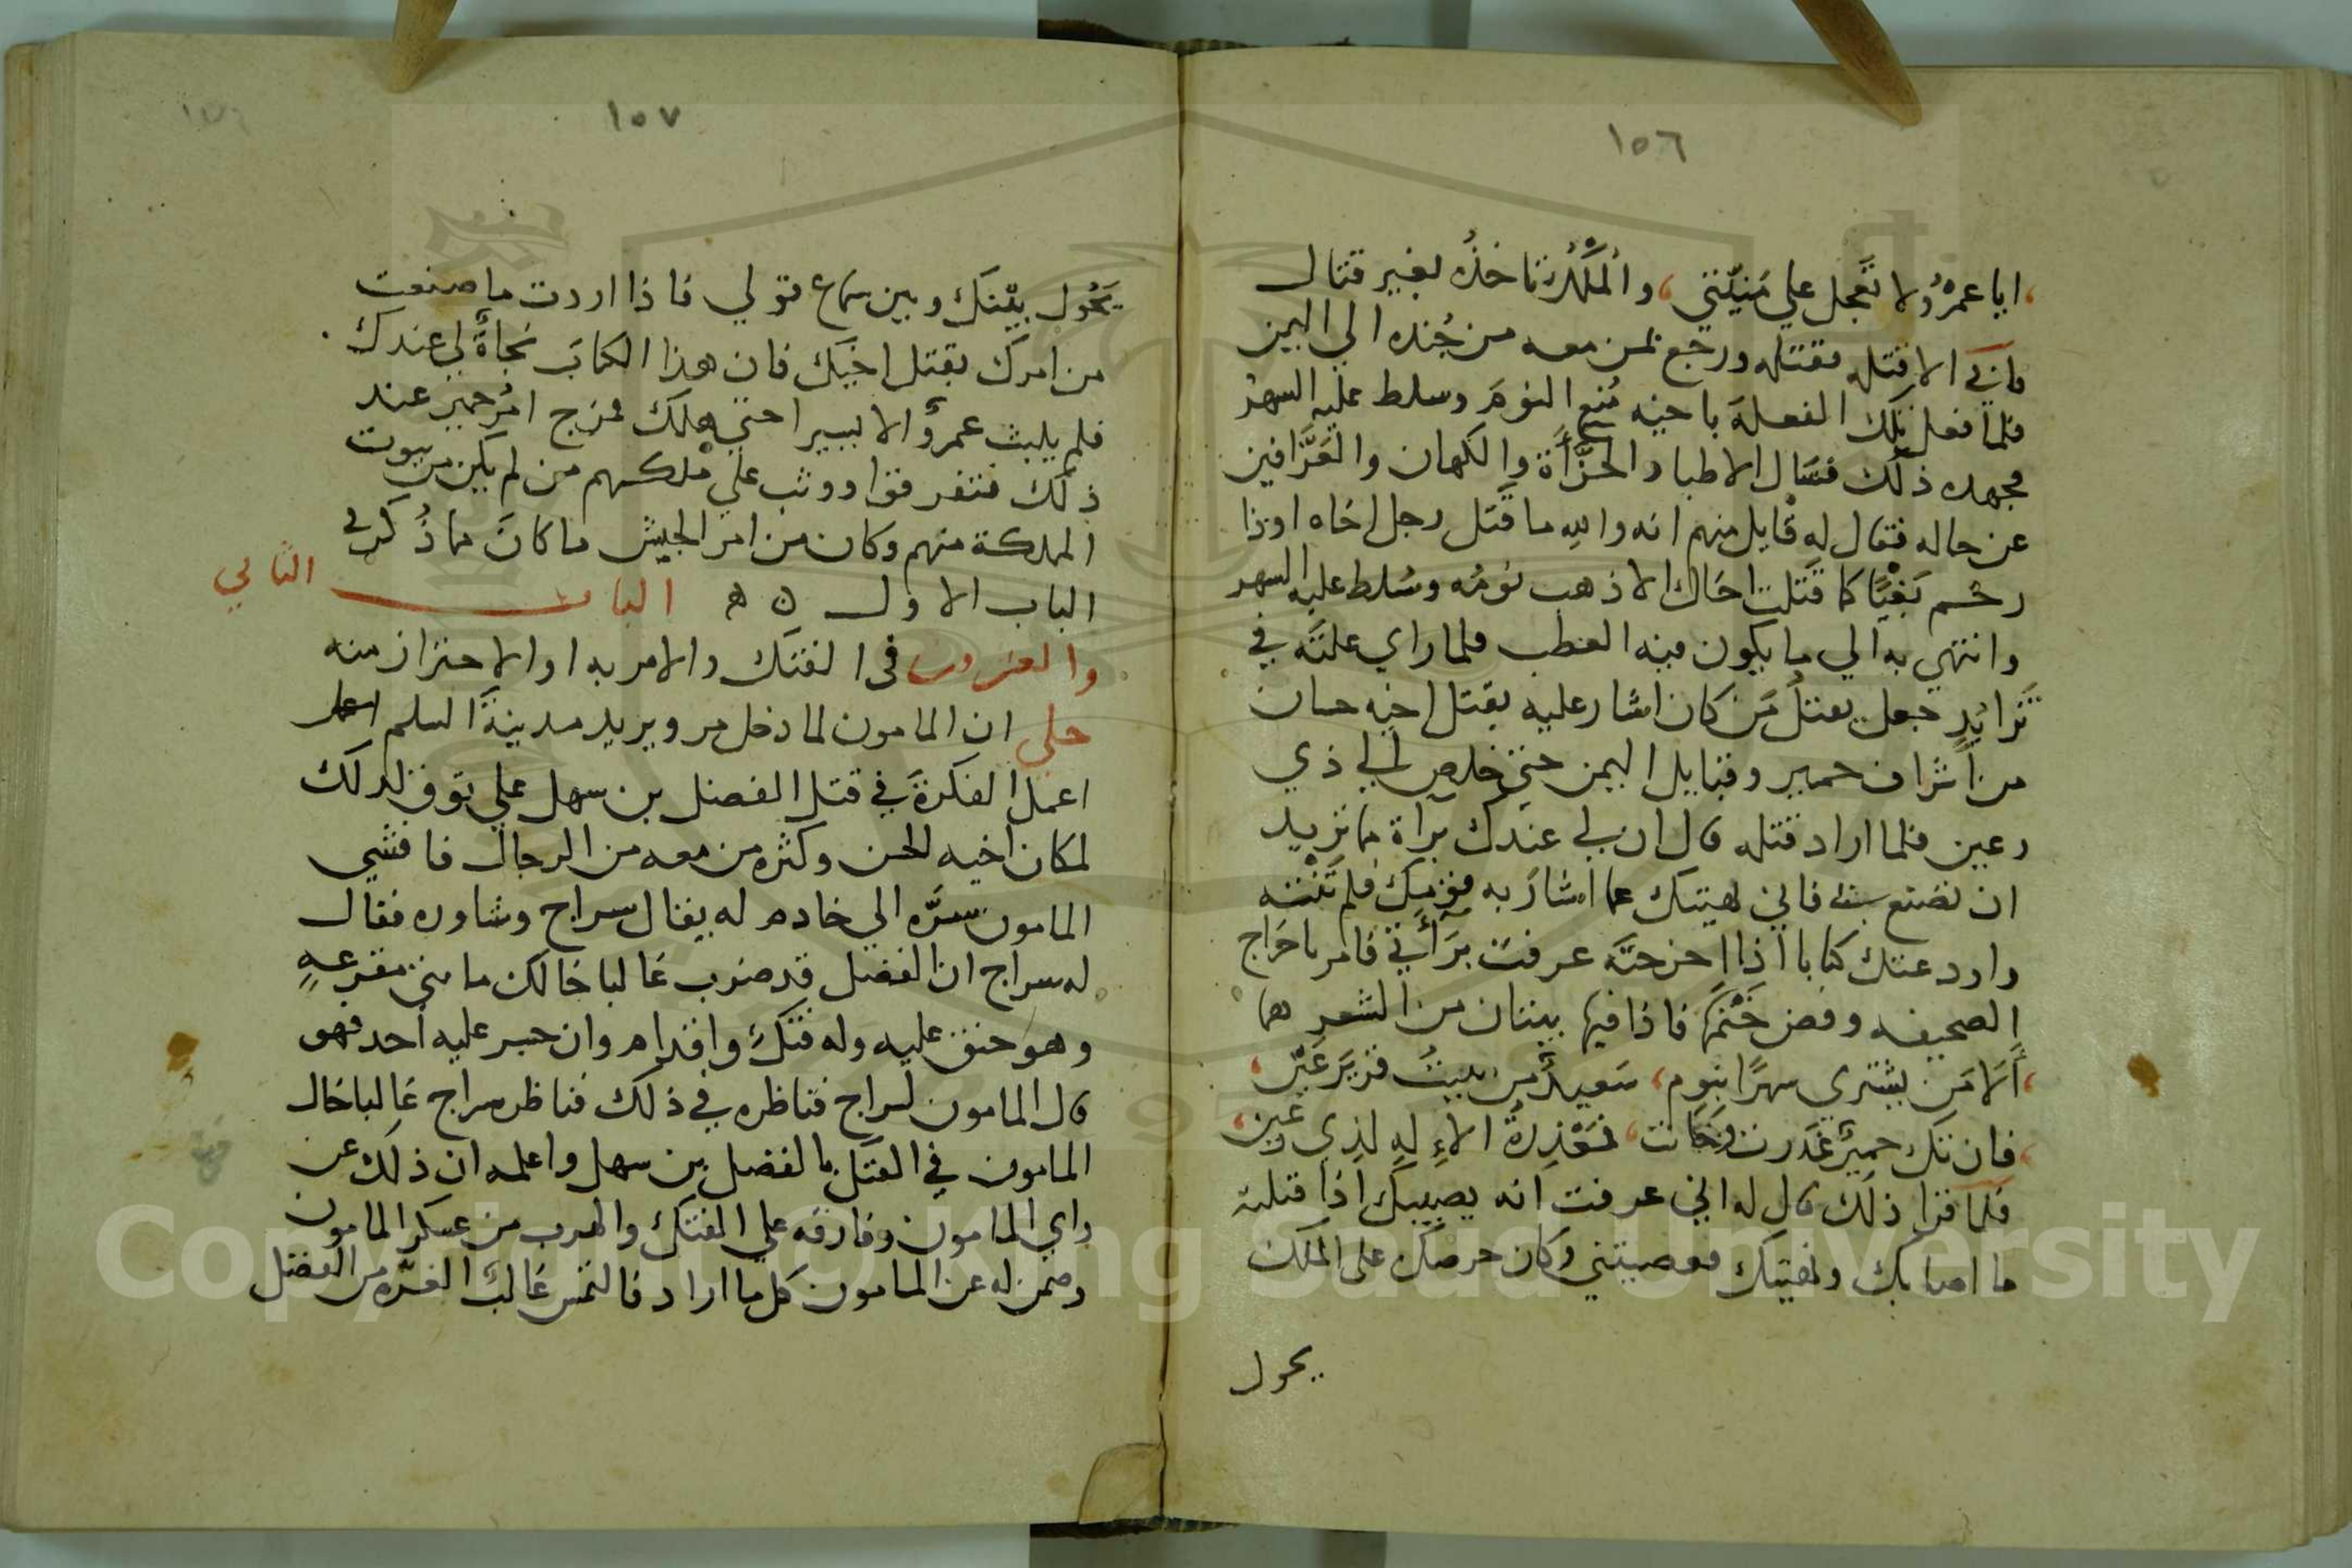 ١٥٦
، ايا عمرُو لا تَعجل علي مَنيّتي ، والمُلكُ تاخذُه بغير قتال
فابي الا قتله فقتله ورجع بمن معه من جُنده الي اليمن
فلما فعل تلك الفعلة باخيه مُنع النومَ وسلط عليه السهر
فجهده ذلك فسَال الاطبا والحُزَّأةَ والكهان والعَرَّافين
عن حاله فقال له قايل منهم انه والله ما قَتل رجل اخاه او ذا
رحم بَغيًا كما قَتلت اخاك الا ذهب نومُه وسُلط عليه السهر
وانتهي به الي ما يكون فيه العطب فلما راي علتَه في
تَزايُدٍ جعل يقتلُ مَن كان اشار عليه بقتل اخيه حسان
من اشراف حمير وقبايل اليمن حتي خلص الي ذي
رعين فلما اراد قتله قال ان لي عندك براة مما تريد
ان تصنع بي فاني نهيتك عما اشارَ به قومك فلم تَنْته
واودعتك كتابا اذا اخرجتَه عرفتَ برَأتي فامر باخراج
الصحيفه وفض خَتْمَها فاذا فيها بيتان من الشعر هما
، أَلا مَن يشتري سهرًا بنوم ، سَعيدٌ من يبيتُ قريرَ عَين ،
، فان تك حميرٌ غدرت وخانت ، فمَعْذِرةُ الالهِ لذي رُعَين ،
فلما قرا ذلك قال له اني عرفت انه يصيبك اذا قتلته
ما اصابك ونهيتك فعصيتني وكان حرصك علي الملك
يحول
١٥٧
يَحُول بيْنَك وبين سماع قولي فاذا اردت ما صنعت
من امرك بقتل اخيك فان هذا الكتابَ نجاةً لي عندك
فلم يلبث عمرٌو الا يسيرا حتي هلك فمرج امُر حميرَ عند
ذلك فتفرقوا ووثب علي ملكهم من لم يكن من بيوت
المملكة منهم وكان من امر الجيش ما كانَ مما ذُكر في
الباب الاول ۞ ه البابــــ الثاني
والعشرون في الفتك والامر به او الاحتراز منه
حكي ان المامون لما دخل مرو يريد مدينةَ السلم
اعمل الفكرةَ في قتل الفضل بن سهل علي توق لذلك
لمكان اخيه الحسن وكثره من معه من الرجال فافشي
المامون سرَّه الي خادم له يقال سراج وشاوره فقال
له سراج ان الفضل قد ضرب غالبا خالك مقرعهٍ
وهو حنق عليه وله فتكٌ واقدام وان جسر عليه احد فهو
قال المامون لسراج فناظره في ذلك فناظر سراج غالبا خال
المامون في الفتك بالفضل بن سهل واعلمه ان ذلك عن
راي المامون وفارقه علي الفتك والهرب من عسكر المامون
وضمن له عن المامون كل ما اراد فالتمس غالبٌ الغرّه من الفضل
Copyright © King Saud University